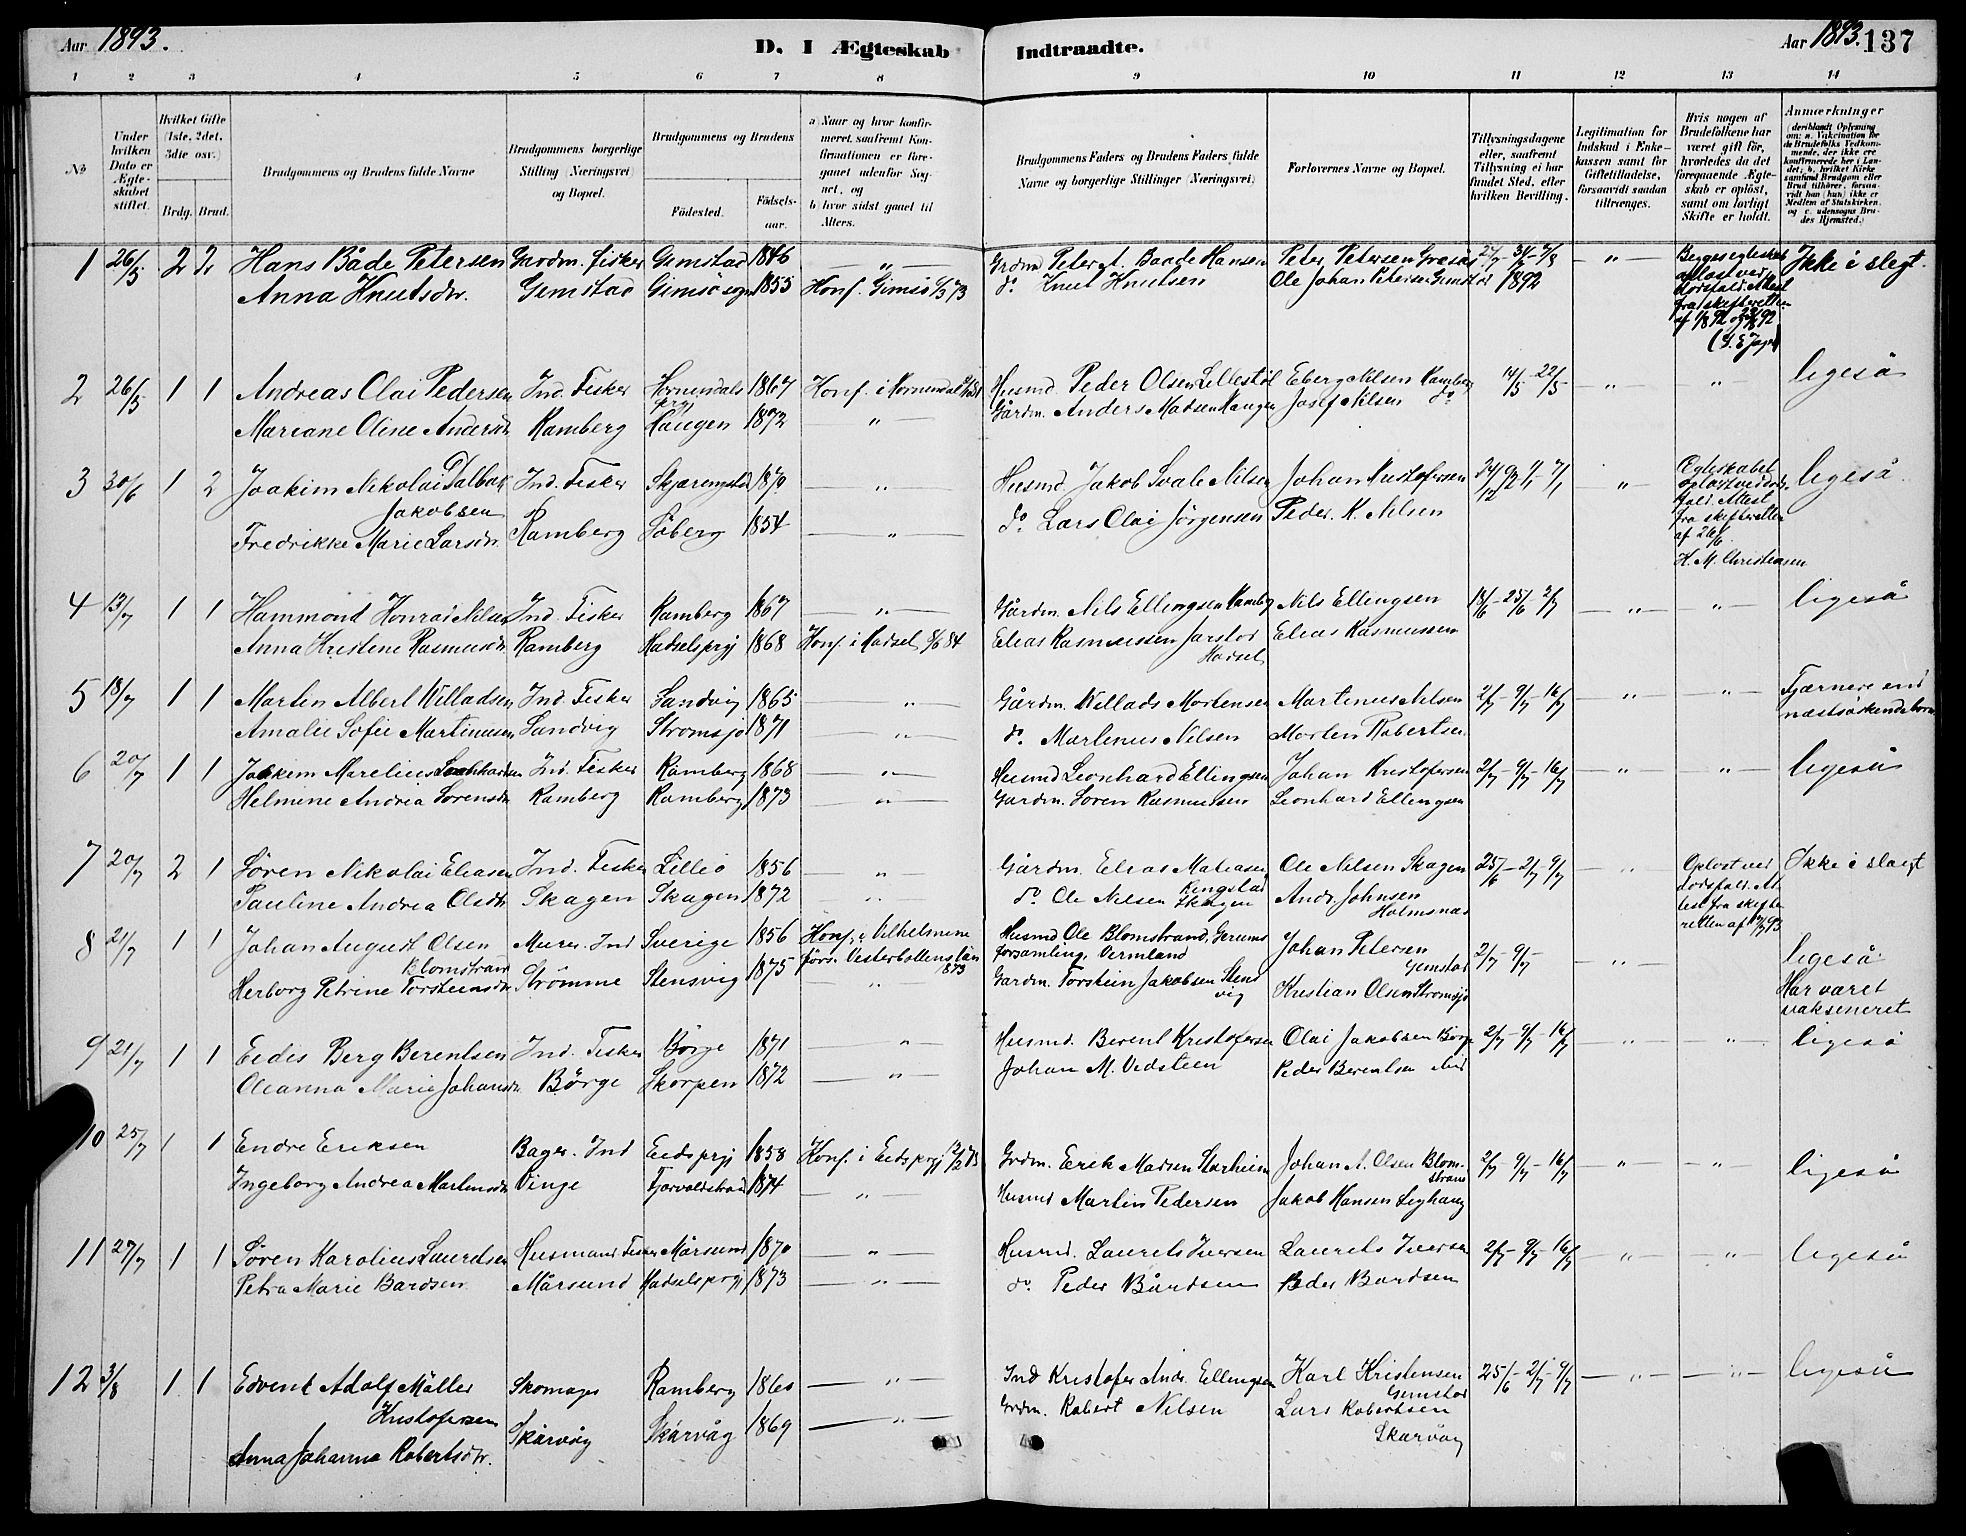 Aar 1893. D. I Ægteskab Indtraadte. Aar 1893. 137
1 2 3 4 5 6 7 8 9 10 11 12 13 14
No
Under hvilken Dato er Ægteskabet stiftet.
Hvilket Gifte (1ste, 2det, 3die osv.)
Brdg. Brud.
Brudgommens og Brudens fulde Navne
Brudgommens borgerlige Stilling (Næringsvei) og Bopæl.
Brudgommens og Brudens
Födested.
Födsels-aar.
a) Naar og hvor konfirmeret, saafremt Konfirmationen er foregaaet udenfor Sognet, og
b) hvor sidst gaaet til Alters.
Brudgommens Faders og Brudens Faders fulde Navne og borgerlige Stillinger (Næringsvei)
Forlovernes Navne og Bopæl.
Tillysningsdagene eller, saafremt Tillysning ei har fundet Sted, efter hvilken Bevilling.
Legitimation for Indskud i Enkekassen samt for Giftetilladelse, forsaavidt saadan tiltrænges.
Hvis nogen af Brudefolkene har været gift för, hvorledes da det foregaaende Ægteskab er oplöst, samt om lovligt Skifte er holdt.
Anmærkninger
1 26/5 2 2 Hans Både Petersen Gaardm. fisker Gimstad 1846 — " — Grdm Peter Baade Hansen Peter Petersen 24/7 - 31/7 - 7/8 — " — Ikke i slegt.
Anna Knutsdtr. Gimstad Gimsö sogn 1855 Konf. Gimsö do. Knut Knutsen Ole Johan Petersen Gimstad 1892
Begges egteskab opløst ved dødsfald. Attest fra skifteretten
2 26/5 1 1 Andreas Olai Pedersen Ind. Fisker Hornindals prgj. 1867 Konf. i Hornindal Husmd. Peder Olsen Lillestöl Eberg Nilsen Ramberg 14/5 - 22/5 — " — — " — ligeså
Mariane Oline Andersdtr Ramberg Haugen 1872 — " — Gårdm. Anders Madsen Haugen Josef Nilsen do
3 30/6 1 2 Joakim Nikolai Dalbak Ind. Fisker Skjæringstad 1870 — " — Husmd. Jakob Svale Nilsen Johan Kristofersen — " — ligeså
Jakobsen
Fredrikke Marie Larsdtr. Ramberg Söberg 1854 — " — do Lars Olai Jörgensen Peder K. Nilsen
Egteskabet opløst ved dødsfald. Attest fra skifteretten af 26/6 H. M. Christensen
4 13/7 1 1 Hammond Konrad Nilsen Ind. Fisker Ramberg 1867 — " — Gårdm. Nils Ellingsen Ramberg Nils Ellingsen 18/6 - 25/6 - 2/7 — " — — " — ligeså
Anna Kristene Rasmusdtr Ramberg Hadselsprgj 1868 Konf. i Hadsel 8/6 84 Elias Rasmussen Jarstad Elias Rasmussen
Hadsel
5 18/7 1 1 Martin Albert Willadsen Ind. Fisker Sandvig 1865 — " — Gårdm. Willads Mortensen Martinus Nilsen 2/7 - 9/7 - 16/7 — " — — " — Fjærnere end
Amalie Sofie Martinusen Sandvig Strömsjö 1871 — " — do. Martinus Nilsen Morten Robertsen næstsöskendebörn
6 20/7 1 1 Joakim Marelius Leonhardsen Ind. Fisker Ramberg 1868 — " — Husmd Leonhard Ellingsen Johan Kristofersen 2/7 - 9/7 - 16/7 — " — — " — ligeså
Helmine Andrea Sörensdtr Ramberg Ramberg 1873 — " — Gardm. Sören Rasmussen Leonhard Ellingsen
7 20/7 2 1 Sören Nikolai Eliasen Ind. Fisker Lilleö 1856 — " — Gårdm. Elias Matiasen Ole Nilsen Skagen 25/6 - 2/7 - 9/7 — " — Ikke i slægt
Ringstad
Pauline Andrea Olsdtr Skagen Skagen 1872 — " — do Ole Nilsen Skagen Andr. Johnsen
Holmsnæs
Opløst ved dødsfald. Attest fra skifteretten
8 21/7 1 1 Johan August Olsen Murer. Ind Sverige 1856 Konf. i Vilhelmine Husmd Ole Blomstrand, Gerums Johan Petersen 2/7 - 9/7 — " — ligeså
Blomstrand förs. Vesterbottens län 1873 forsamling, Vermland Gimstad
Herborg Petrine Torsteinsdtr Strömme Stensvig 1875 — " — Gardm. Torstein Jakobsen Stensvig Kristian Olsen Strömsjö Har været
vaksineret
9 21/7 1 1 Eedis Berg Berentsen Ind. Fisker Börge 1871 — " — Husmd. Berent Kristofersen Olai Jakobsen Börge 2/7 - 9/7 - 16/7 — " — — " — ligeså
Oleanna Marie Johansdtr Börge Skorpen 1872 — " — Johan M. Vedsteen Peder Berentsen
10 25/7 1 1 Endre Eriksen Bager. Ind Eidsprgj 1858 Konf. i Eidsprgj Grdm. Erik Madsen Starheim Johan A. Olsen Blomstrand 2/7 - 9/7 - 16/7 — " — — " — ligeså
Ingeborg Andrea Martinsdtr Vinje Fjærvoldstrand 1874 — " — Husmd Martin Pedersen Jakob Hansen Leghaug
11 27/7 1 1 Sören Karolius Lauritsen Husmand Fisker Mårsund 1870 — " — Husmd. Laurits Iversen Laurits Iversen 2/7 - 9/7 - 16/7 — " — — " — ligeså
Petra Marie Bardsen Mårsund Hadselsprgj 1873 — " — do. Peder Bårdsen Peder Bardsen
12 3/8 1 1 Edvent Adolf Möller Skomager Ramberg 1860 — " — Ind Kristofer Andr. Ellingsen Karl Kristensen 25/6 - 2/7 - 9/7 — " — — " — ligeså
Kristofersen Gimstad
Anna Johanna Robertsdtr. Skårvåg Skårvåg 1869 — " — Grdm. Robert Nilsen Lars Robertsen
Skårvåg